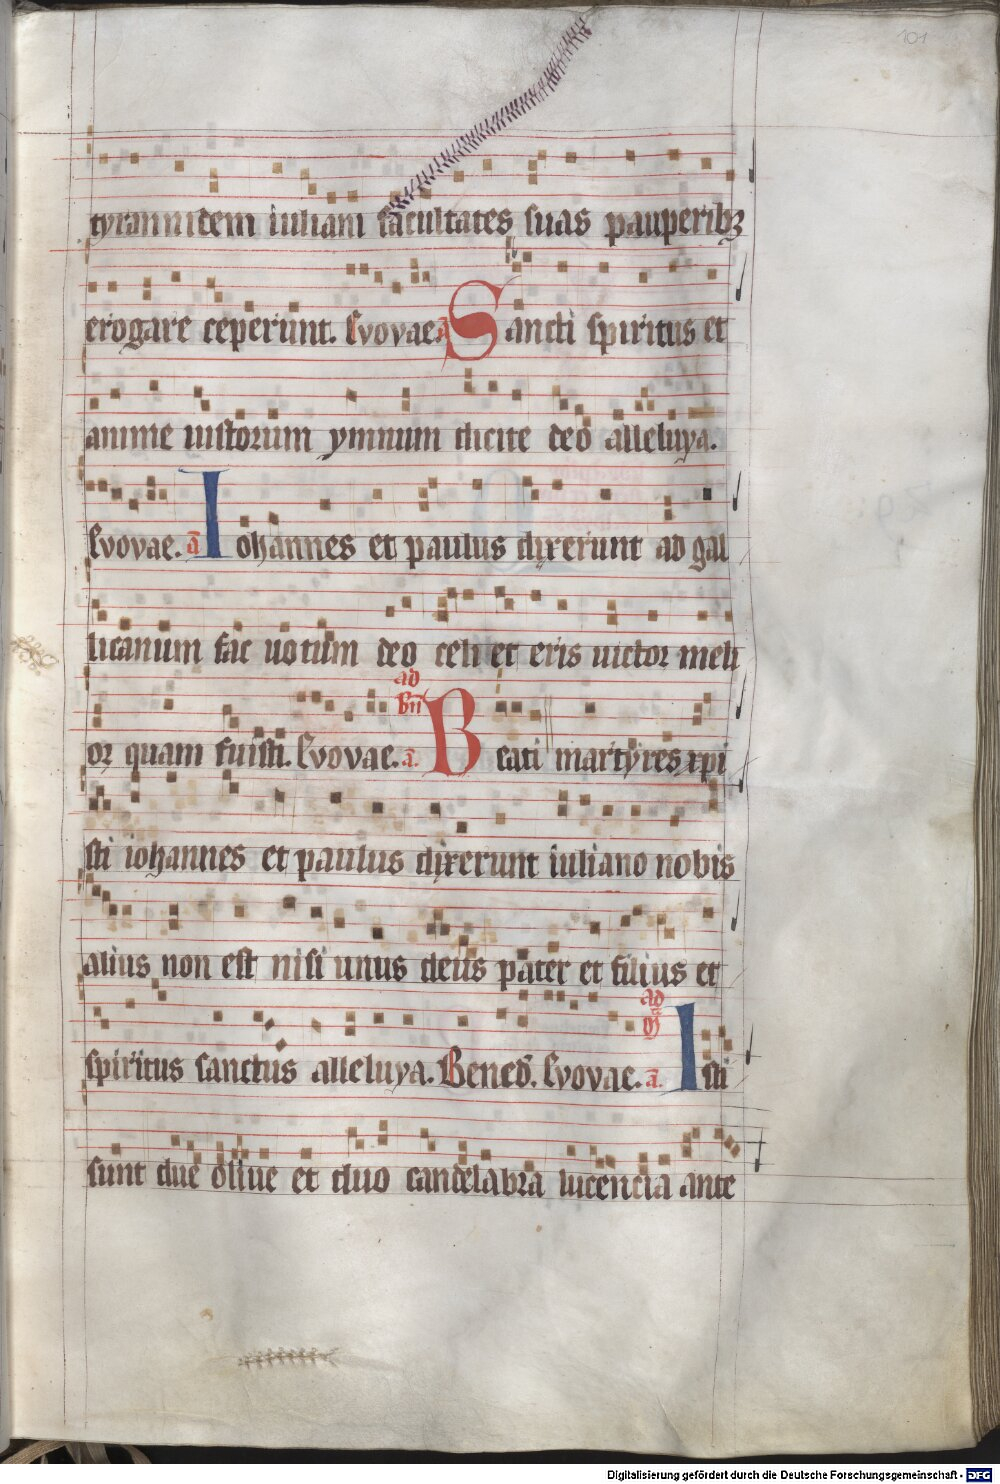 101
tyrannidem iuliani facultates suas pauperibꝫ
erogare ceperunt. Evovae. a̅ Sancti spiritus et
anime iustorum ymnum dicite deo alleluya.
Evovae. a̅ Iohannes et paulus dixerunt ad gal
licanum fac uotum deo celi et eris uictor meli
ad
or quam fuisti. Evovae. a̅. Bn̅ Beati martyres xpi
sti iohannes et paulus dixerunt iuliano nobis
alius non est nisi unus deus pater et filius et
ad
spiritus sanctus alleluya. Bened̅. Evovae. a̅. Isti
sunt due oliue et duo candelabra lucencia ante
Digitalisierung gefördert durch die Deutsche Forschungsgemeinschaft - DFG